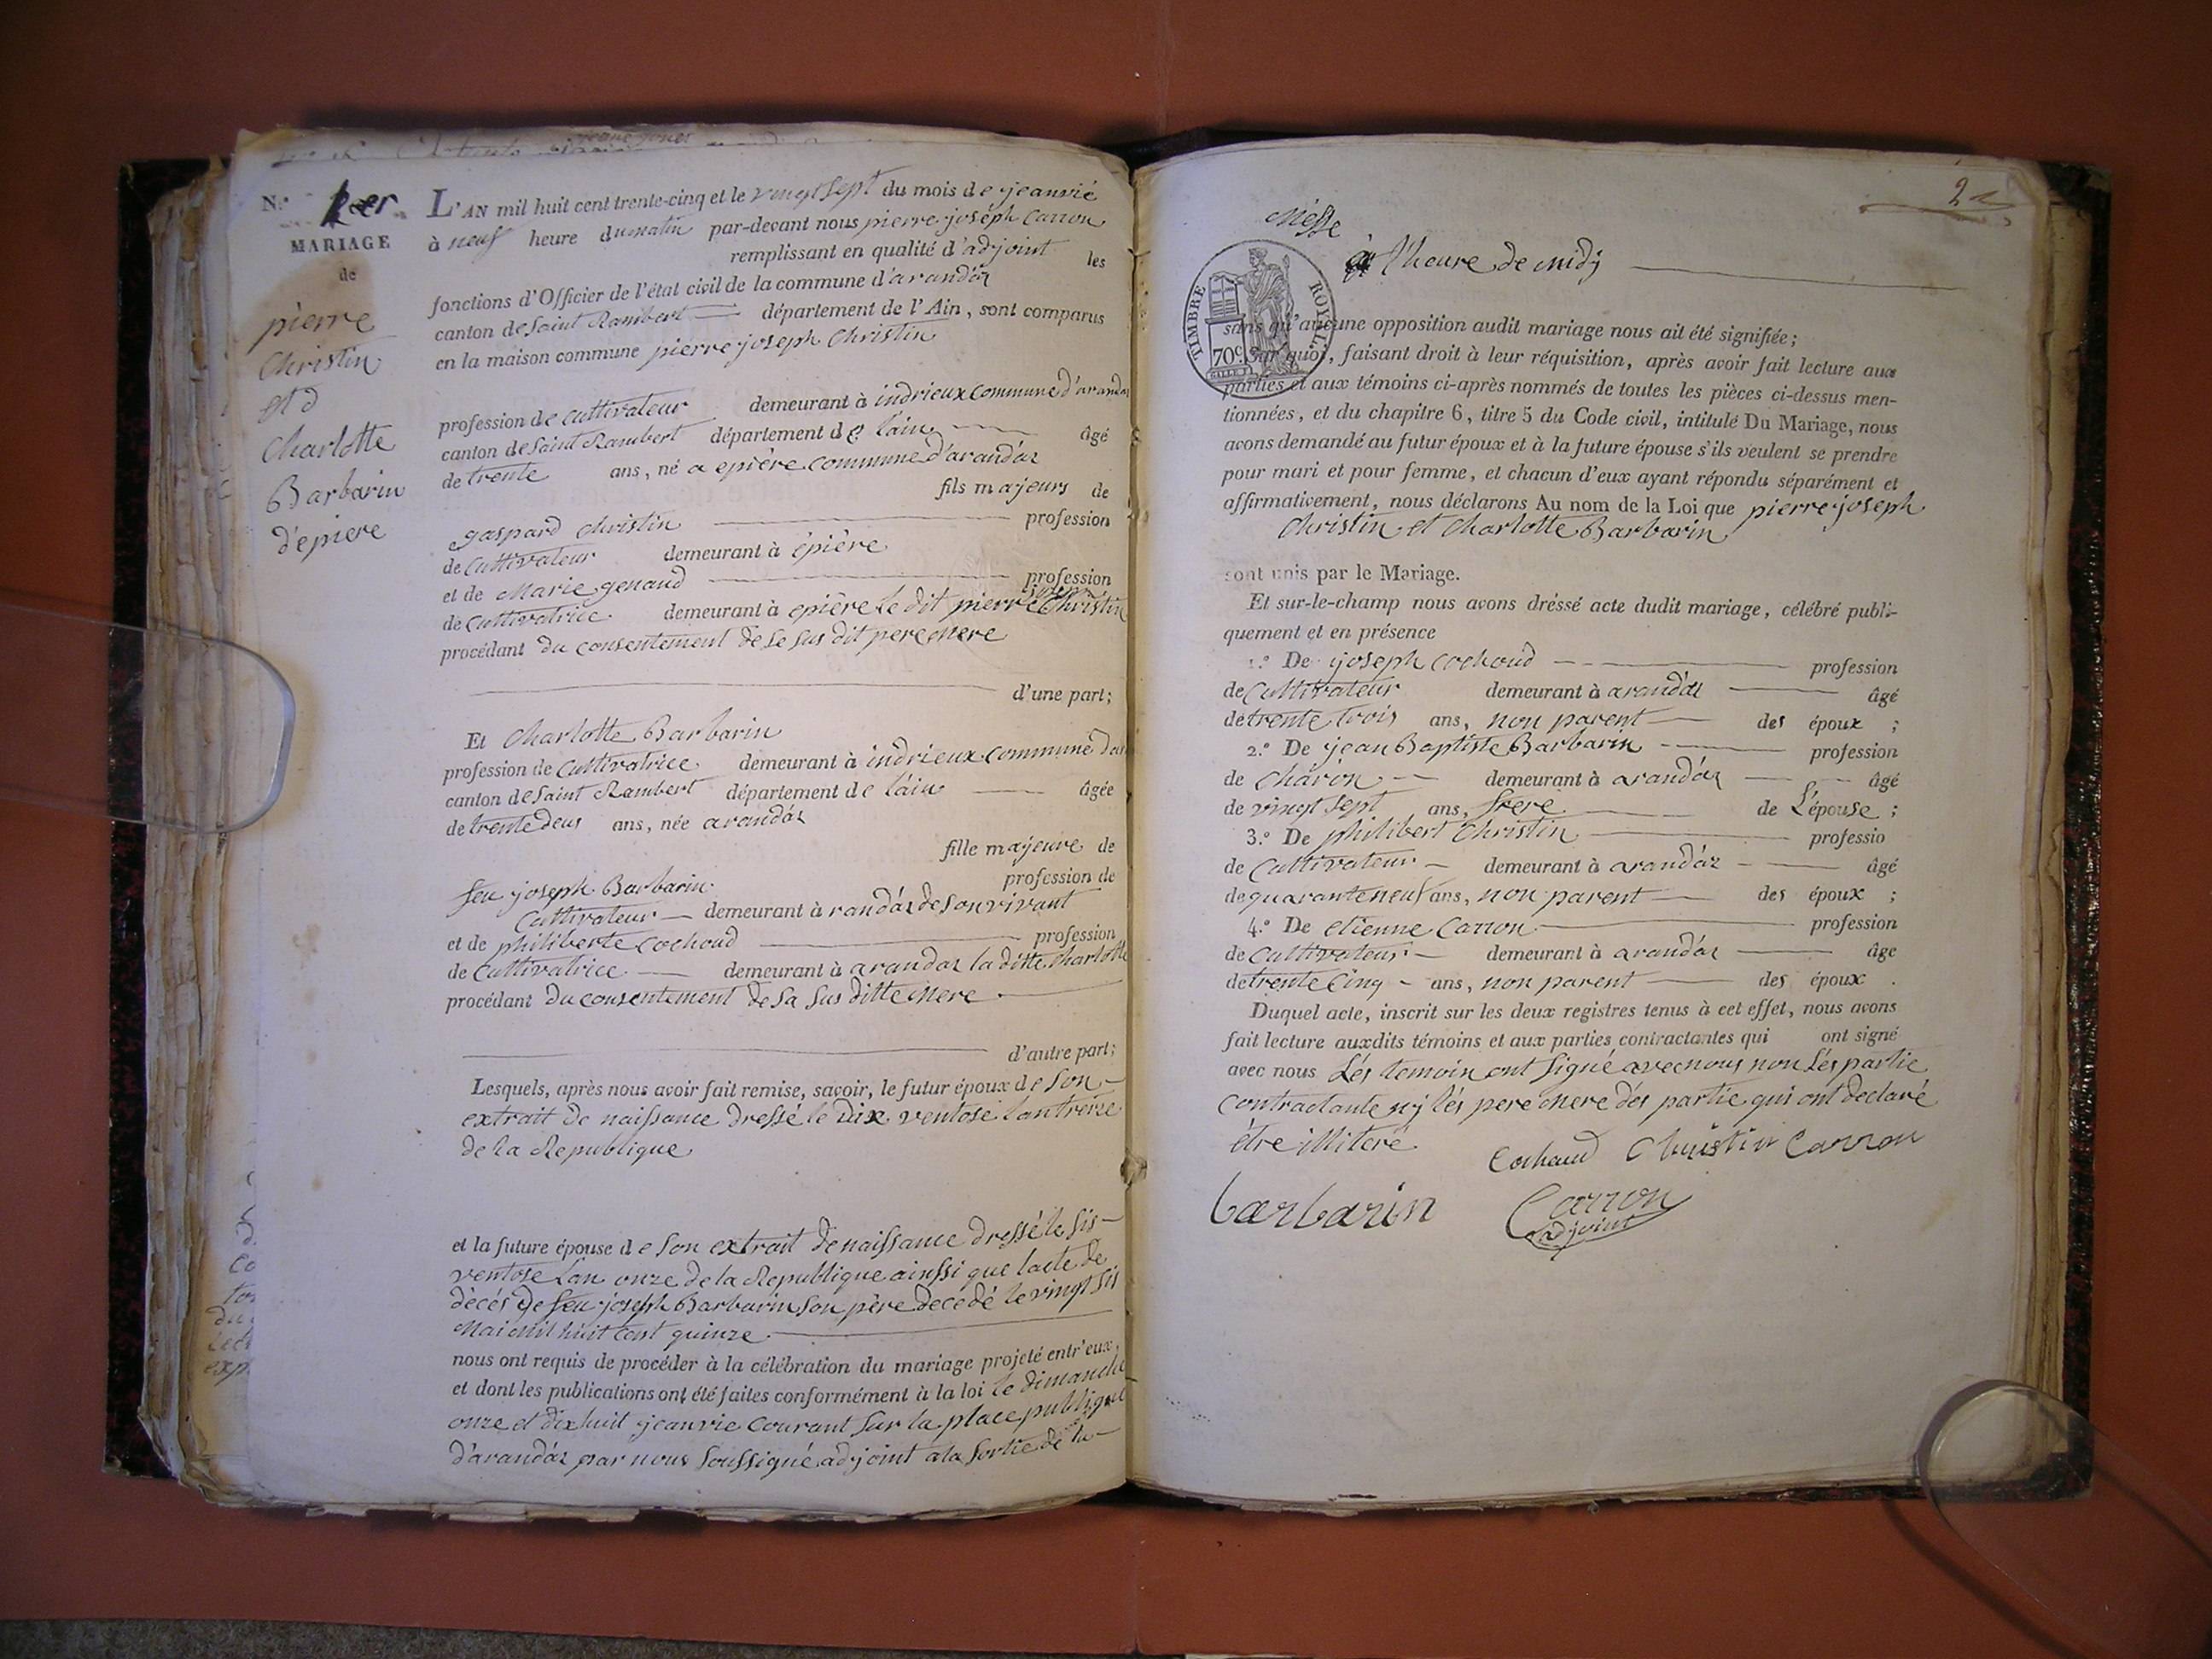 N.o 1er
MARIAGE
de
pierre
Christin
et
Charlotte
Barbarin
d'épiere
L'AN mil huit cent trente-cinq et le vingt sept du mois de jeanvié
à neuf heure du matin par-devant nous pierre joséph Carron
remplissant en qualité d'adjoint les
fonctions d'Officier de l'état civil de la commune d'arandáz
canton de Saint Rambert département de l'Ain, sont comparus
en la maison commune pierre joseph Christin
profession de cultivateur demeurant à indrieux commune d'arandas
canton de Saint Rambert département de l'ain âgé
de trente ans, né a epière commune d'arandáz
fils majeurs de
gaspard Christin profession
de Cultivateur demeurant à épière
et de Marie genaud profession
de Cultivatrice demeurant à epière le dit pierre joseph Christin
procédant du consentement de se sus dit pere mere
d'une part;
Et Charlotte Barbarin
profession de Cultivatrice demeurant à indrieux commune dar
canton de Saint Rambert département de l'ain âgée
de trente deus ans, née arandáz
fille majeure de
feu joseph Barbarin profession de
Cultivateur demeurant à randáz de son vivant
et de philiberte Cochoud profession
de Cultivatrice demeurant à arandaz la ditte Charlotte
procédant du consentement de sa sus ditte mere
d'autre part;
Lesquels, après nous avoir fait remise, savoir, le futur époux de son
extrait de naissance dressé le dix ventose l'an treize
de la Republique
et la future épouse de son extrait de naissance dressé le sis
ventose l'an onze de la Republique ainssi que lacte de
décés de feu joseph Barbarin son père decédé le vingt sis
Mai mil huit cent quinze
nous ont requis de procéder à la célébration du mariage projeté entr'eux,
et dont les publications ont été faites conformément à la loi le dimanche
onze et dix huit jeanvie Courant sur la place publique
d'arandáz par nous soussigné adjoint a la sortie de la
2
Messe
à l'heure de midj
TIMBRE ROYAL
70c.
sans qu'aucune opposition audit mariage nous ait été signifiée;
Sur quoi, faisant droit à leur réquisition, après avoir fait lecture aux
parties et aux témoins ci-après nommés de toutes les pièces ci-dessus men-
tionnées, et du chapitre 6, titre 5 du Code civil, intitulé Du Mariage, nous
avons demandé au futur époux et à la future épouse s'ils veulent se prendre
pour mari et pour femme, et chacun d'eux ayant répondu séparément et
affirmativement, nous déclarons Au nom de la Loi que pierre joseph
Christin et Charlotte Barbarin
sont unis par le Mariage.
Et sur-le-champ nous avons dréssé acte dudit mariage, célébré publi-
quement et en présence
1.o De joséph Cochoud profession
de Cultivateur demeurant à arandáz âgé
de trente trois ans, non parent des époux ;
2.o De jean Baptiste Barbarin profession
de Charon demeurant à arandáz âgé
de vingt sept ans, frere de L'épouse ;
3.o De philibert Christin professio
de Cultivateur demeurant à arandáz âgé
de quarante neuf ans, non parent des époux ;
4.o De etienne Carron profession
de Cultivateur demeurant à arandáz âgé
de trente Cinq ans, non parent des époux .
Duquel acte, inscrit sur les deux registres tenus à cet effet, nous avons
fait lecture auxdits témoins et aux parties contractantes qui ont signé
avec nous Lés temoin ont signé avec nous non Lés partie
Contractante nj lés pere mere dés partie qui ont declaré
être illiteré
Cochaud Christin Carron
barbarin Carron
adjoint